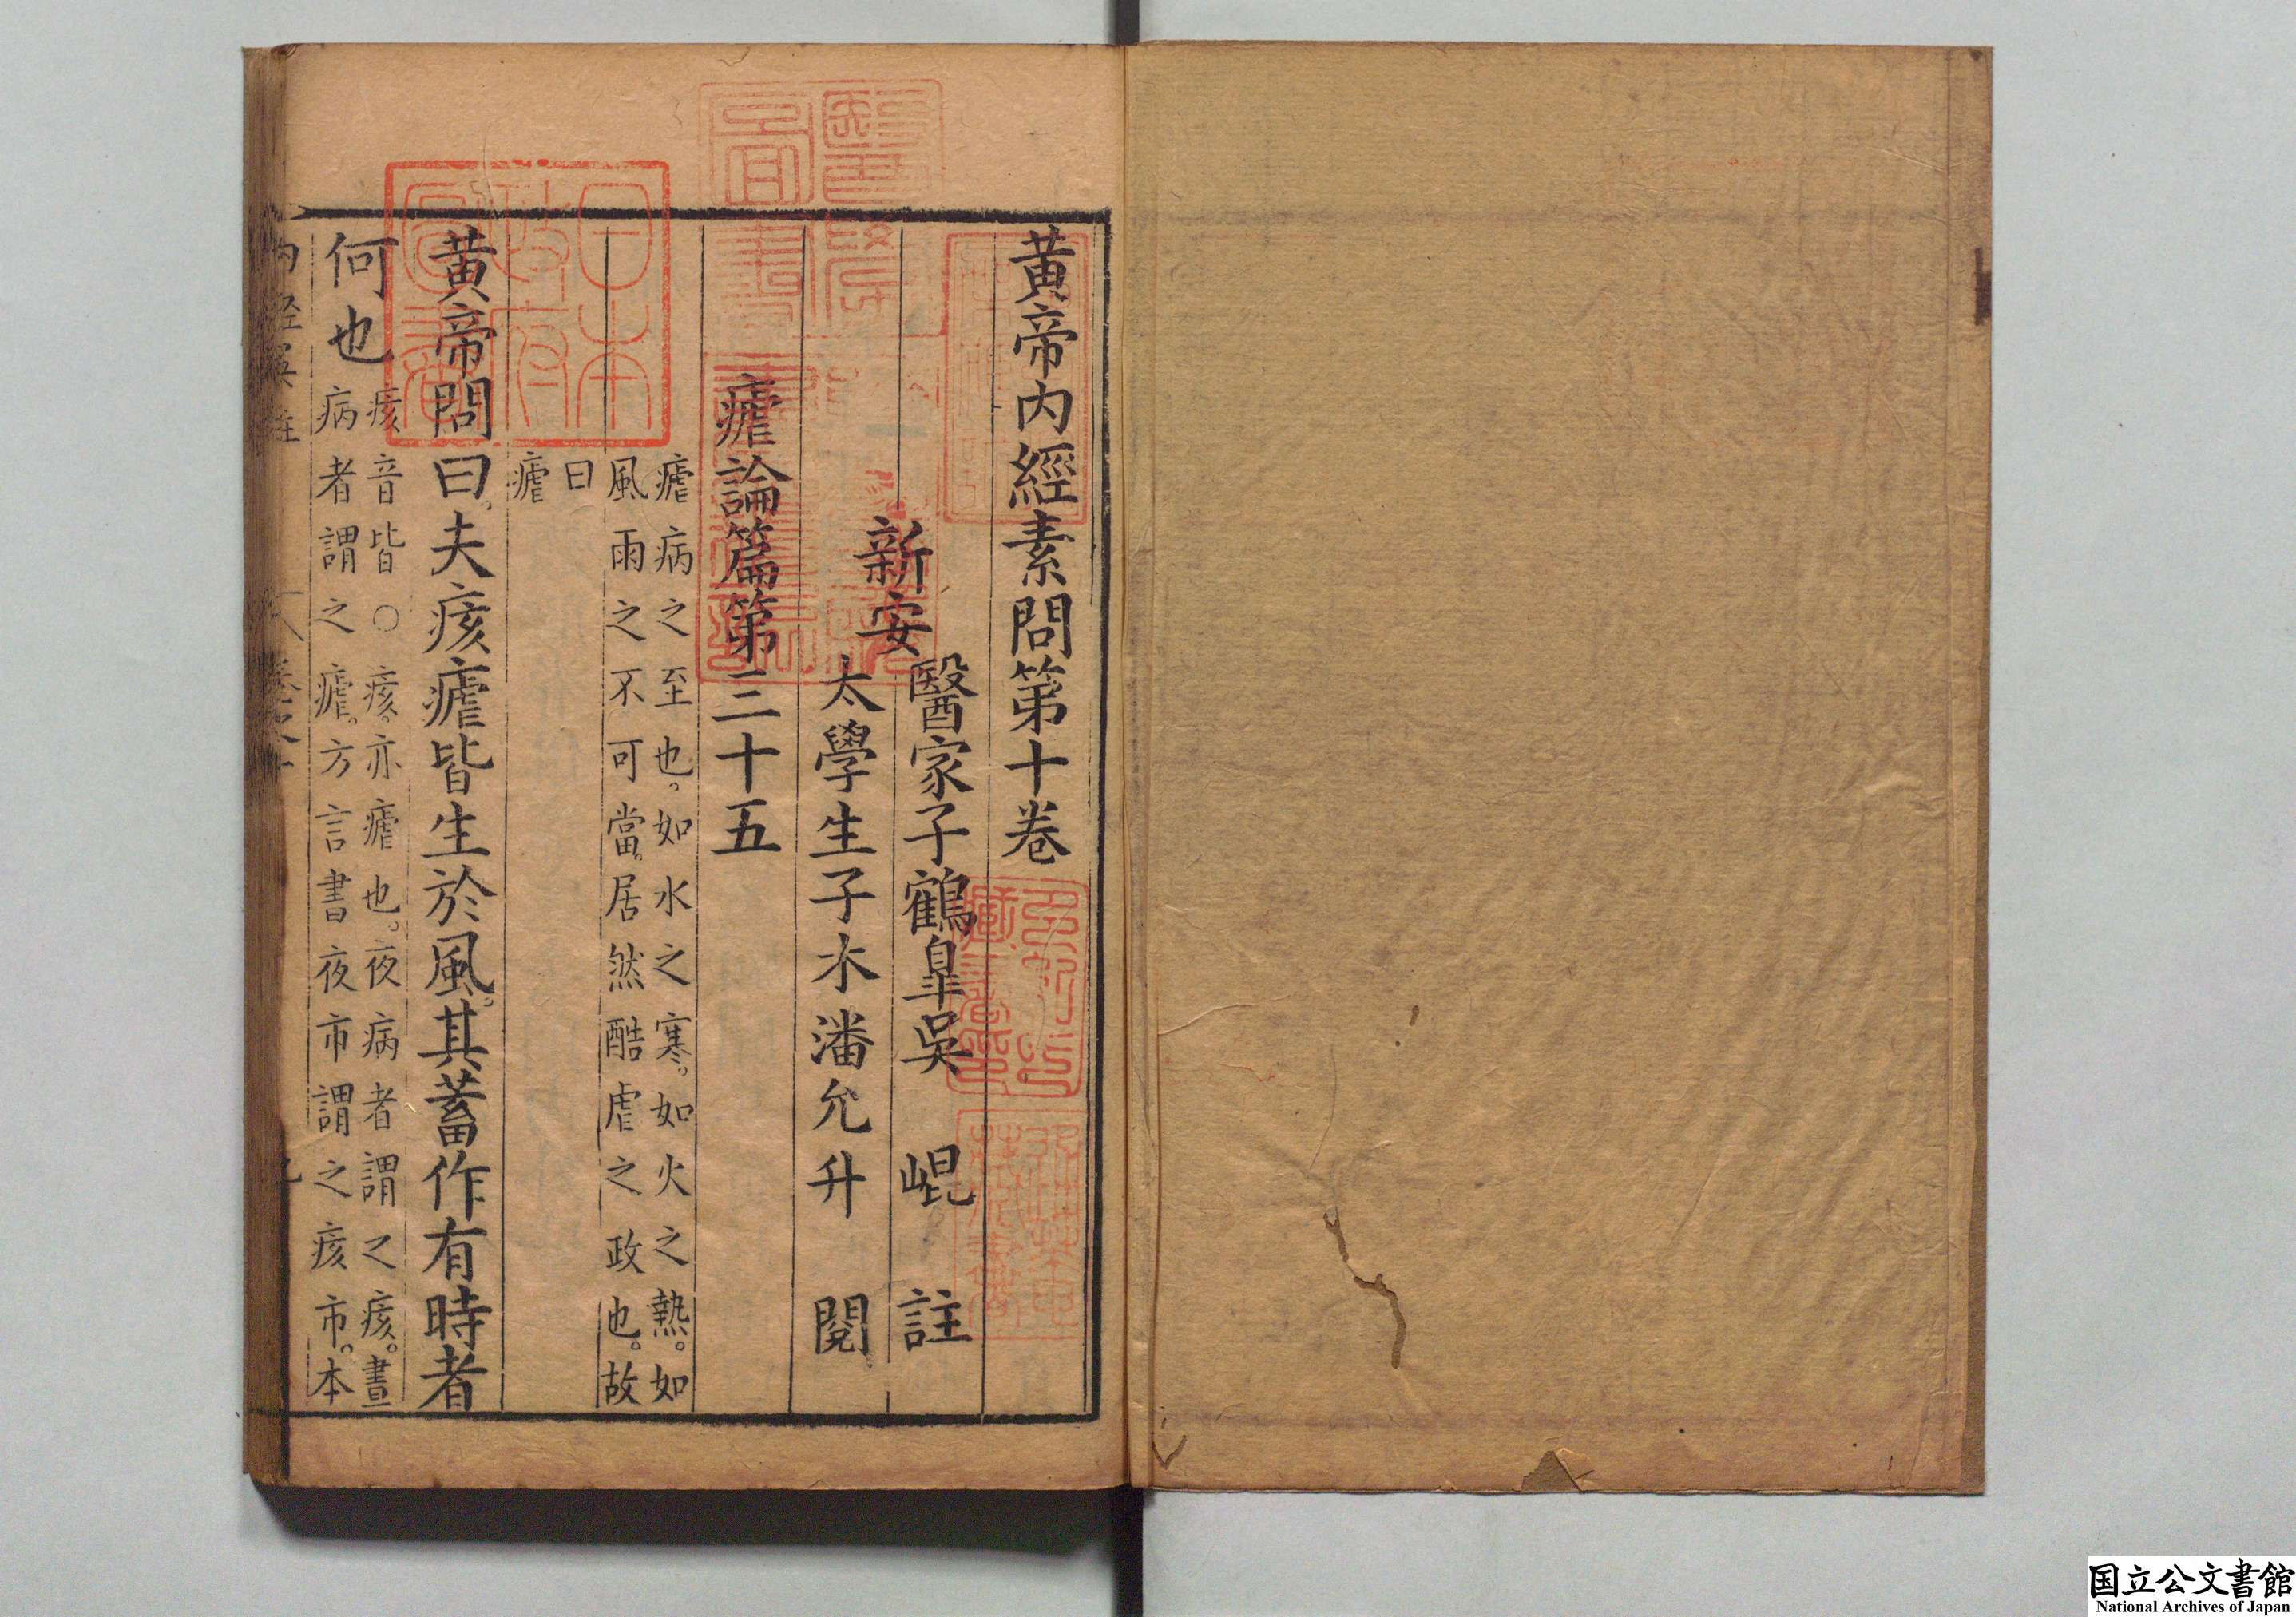 黃帝內經素問第十卷
新安
醫家子鶴皐吳崐註
太學生子水潘允升閱
瘧論篇第三十五
瘧病之至也。如水之寒。如火之熱。如
風雨之不可當。居然酷虐之政也。故
曰
瘧
黃帝問曰。夫痎瘧皆生於風。其蓄作有時者
何也
痎音皆○痎。亦瘧也。夜病者謂之痎。晝
病者謂之瘧。方言書夜市謂之痎市。本
日本
政府
圖書
国立公文書館
National Archives of Japan